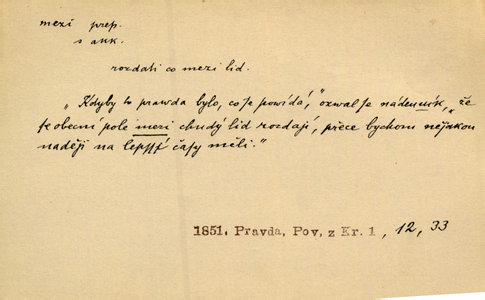 mezi prep.
s akk.
rozdati co mezi lid.
„Kdyby to prawda bylo, co se powídá,“ ozwal se nádenník, „že
se obecní pole mezi chudý lid rozdají, přece bychom nějakou
naději na lepssí časy měli.“
1851. Pravda, Pov. z Kr. 1, 12, 33